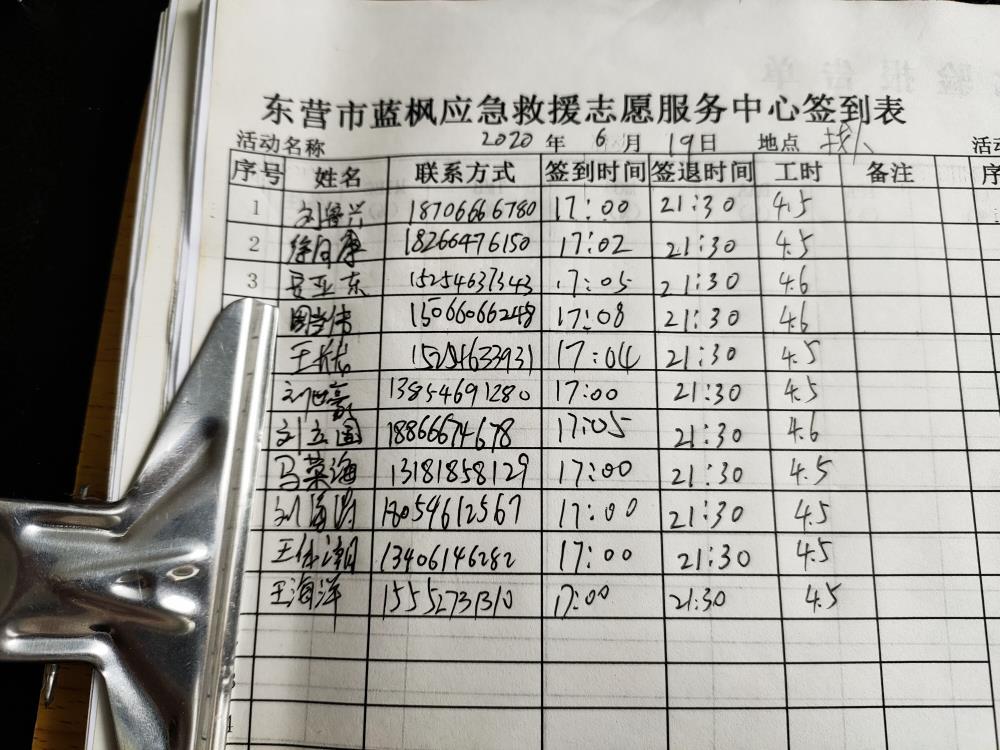 东营市蓝枫应急救援志愿服务中心签到表
活动名称 2020 年 6 月 19日 地点 找人 活动
序号 姓名 联系方式 签到时间 签退时间 工时 备注 序
1 18706666780 17:00 21:30 4.5
2 18266476150 17:02 21:30 4.5
3 15254637343 17:05 21:30 4.6
15066066248 17:08 21:30 4.6
15254633931 17:04 21:30 4.5
刘世豪 13854691280 17:00 21:30 4.5
刘立国 18866674678 17:05 21:30 4.6
马荣海 13181858129 17:00 21:30 4.5
刘海滨 18054612567 17:00 21:30 4.5
13406146282 17:00 21:30 4.5
王海洋 15552731310 17:00 21:30 4.5